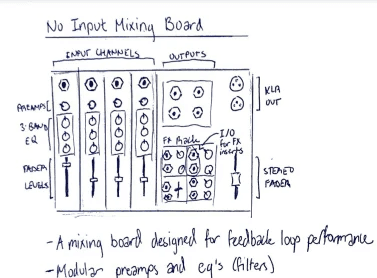 No Input Mixing Board
INPUT CHANNELS
OUTPUTS
PREAMPS
3-BAND
EQ
FADER
LEVELS
FX Rack
I/O
for FX
inserts
XLR
OUT
STEREO
FADER
- A mixing board designed for feedback loop performance
- Modular preamps and eq's (filters)